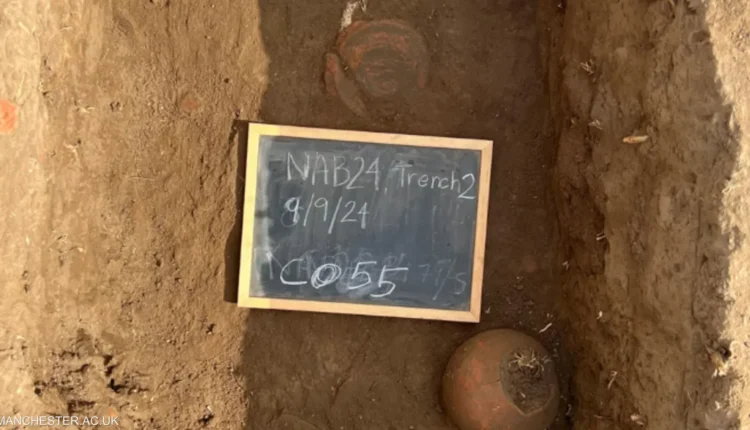 NAB24, Trench2
8/9/24
C055
MANCHESTER.AC.UK